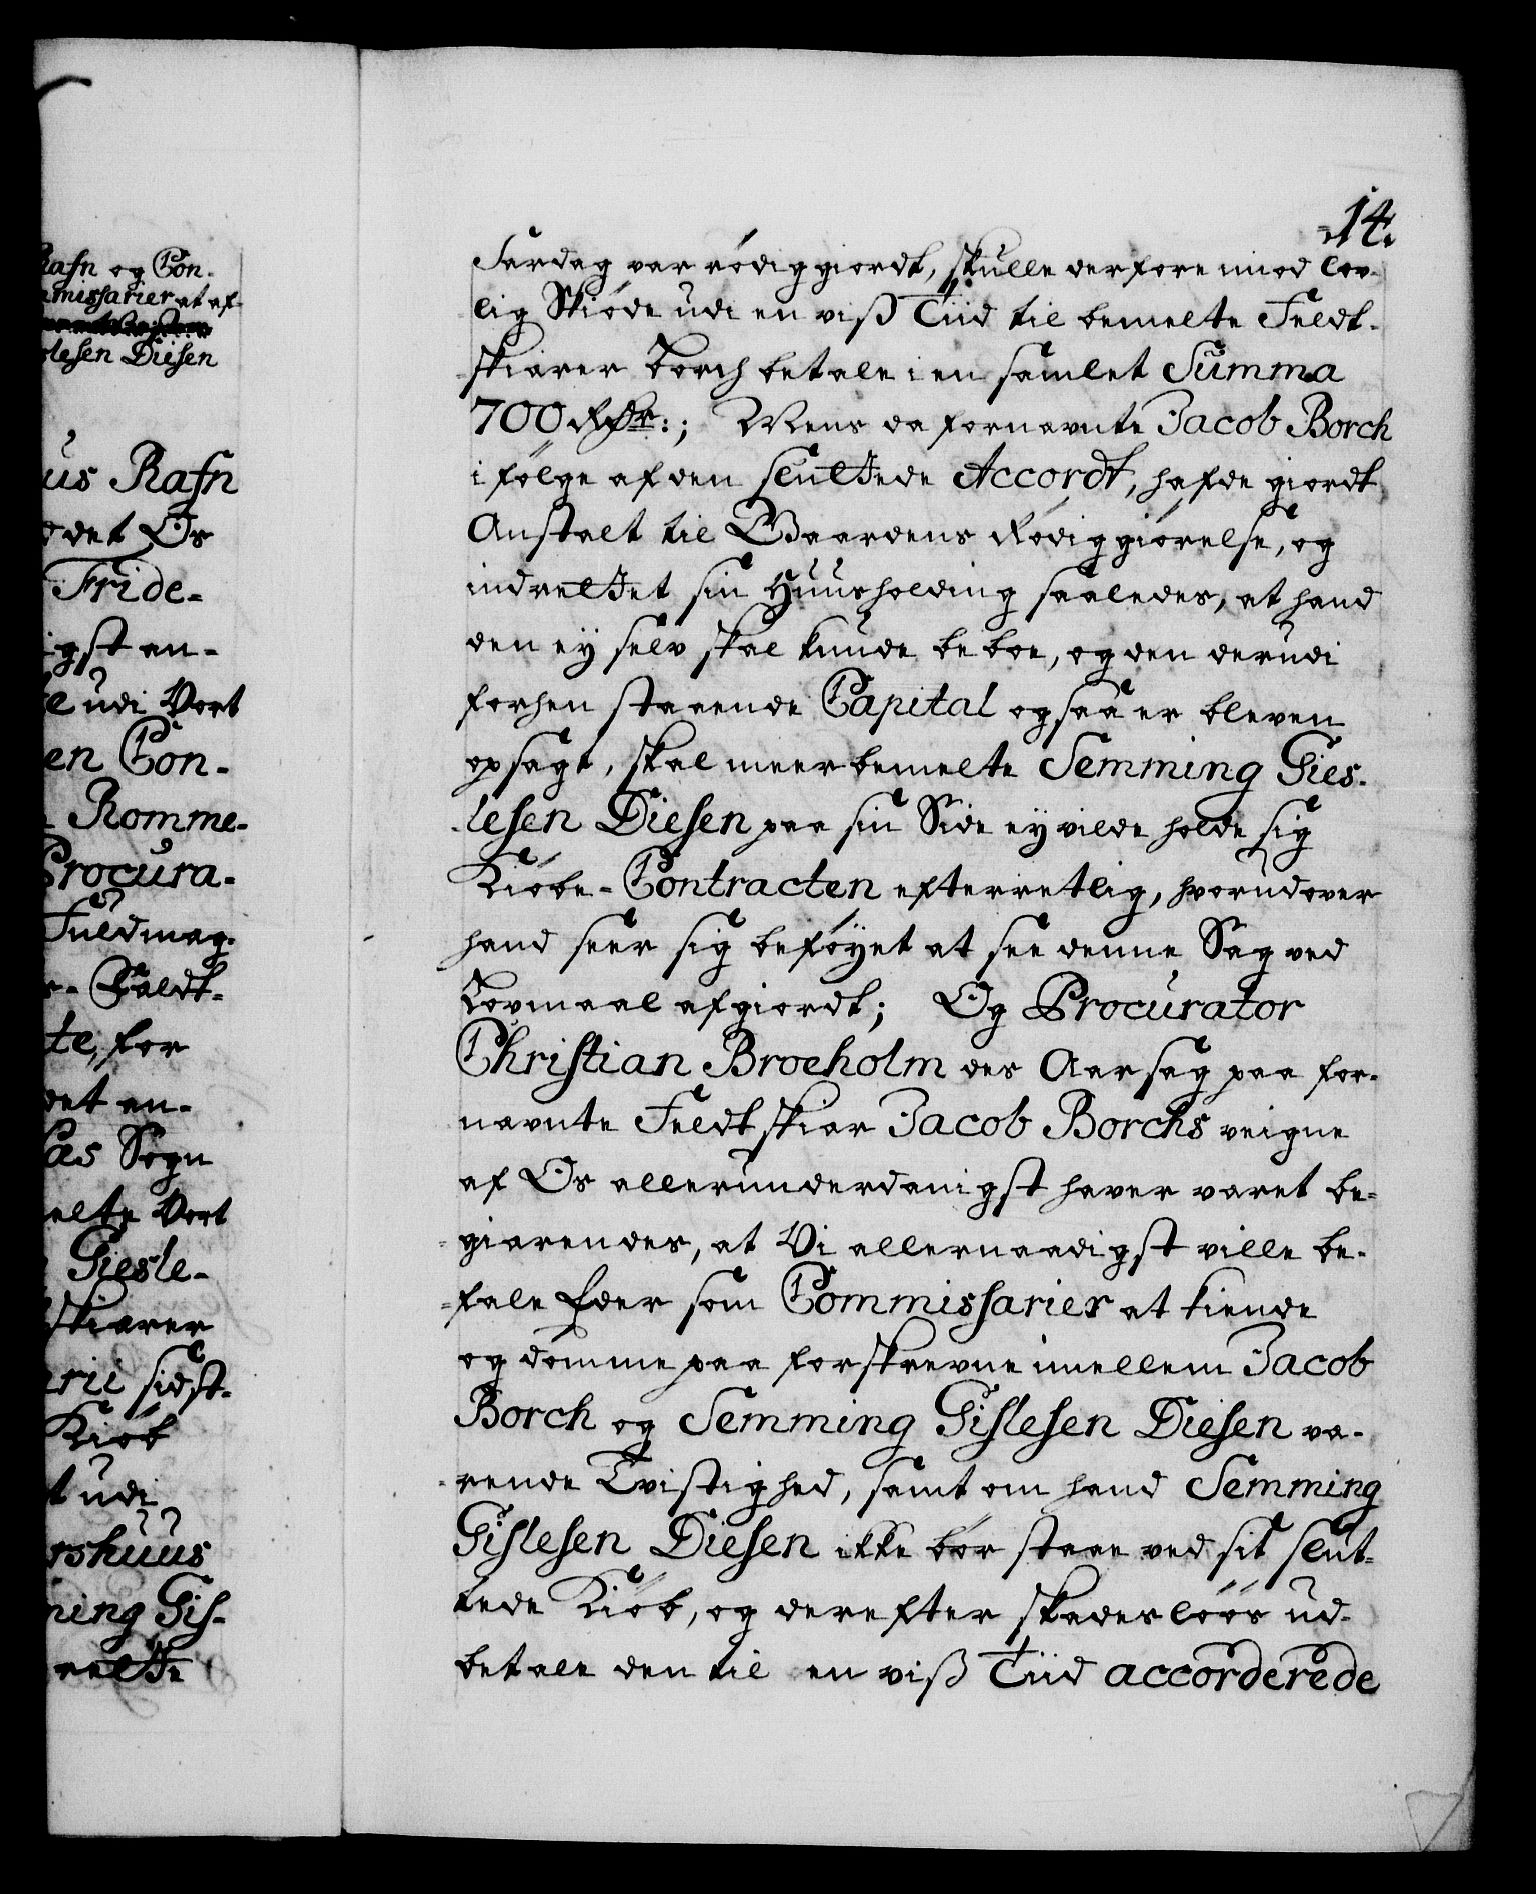 Rafn og Con-
missarier at af-
lesen Diesen
us Rafn
det Os
Fride-
igst an-
e udi Vort
en Con-
Romme-
Procura-
Fuldmag-
Feldt-
te, for
det an-
as Sogn
elte Vort
Giesle-
skiærer
rii sidst-
Kiøb
t udi
rshuus
ning Gis-
14.
Fardag var rødiggiordt, skulle derfore imod lov-
lig Skiøde udi en viß Tiid til bemelte Feldt-
skiærer Borch betale i en samlet Summa
700 Rdr:; Mens da fornævnte Jacob Borch
i følge af den sluttede Accordt, hafde giordt
Anstalt til Gaardens Rødiggiørelse, og
indrettet sin Huusholding saaledes, at hand
den ey selv skal kunde beboe, og den derudi
forhen staaende Capital ogsaa er bleven
opsagt, skal meerbemelte Semming Gies-
lesen Diesen paa sin Side ey vilde holde sig
Kiøbe-Contracten efterretlig, hvorudover
hand seer sig beføyet at see denne Sag ved
Lovmaal afgiordt; Og Procurator
Christian Broeholm des Aarsag paa for-
nævnte Feldtskiær Jacob Borchs veigne
af Os allerunderdanigst haver været be-
giærendes, at Vi allernaadigst ville be-
fale Eder som Commissarier at kiende
og dømme paa forskrevne imellem Jacob
Borch og Semming Gislesen Diesen væ-
rende Tvistighed, samt om hand Semming
Gislesen Diesen ikke bør staae ved sit slut-
tede Kiøb, og derefter skadesløøs ud-
betale den til en viß Tiid accorderede